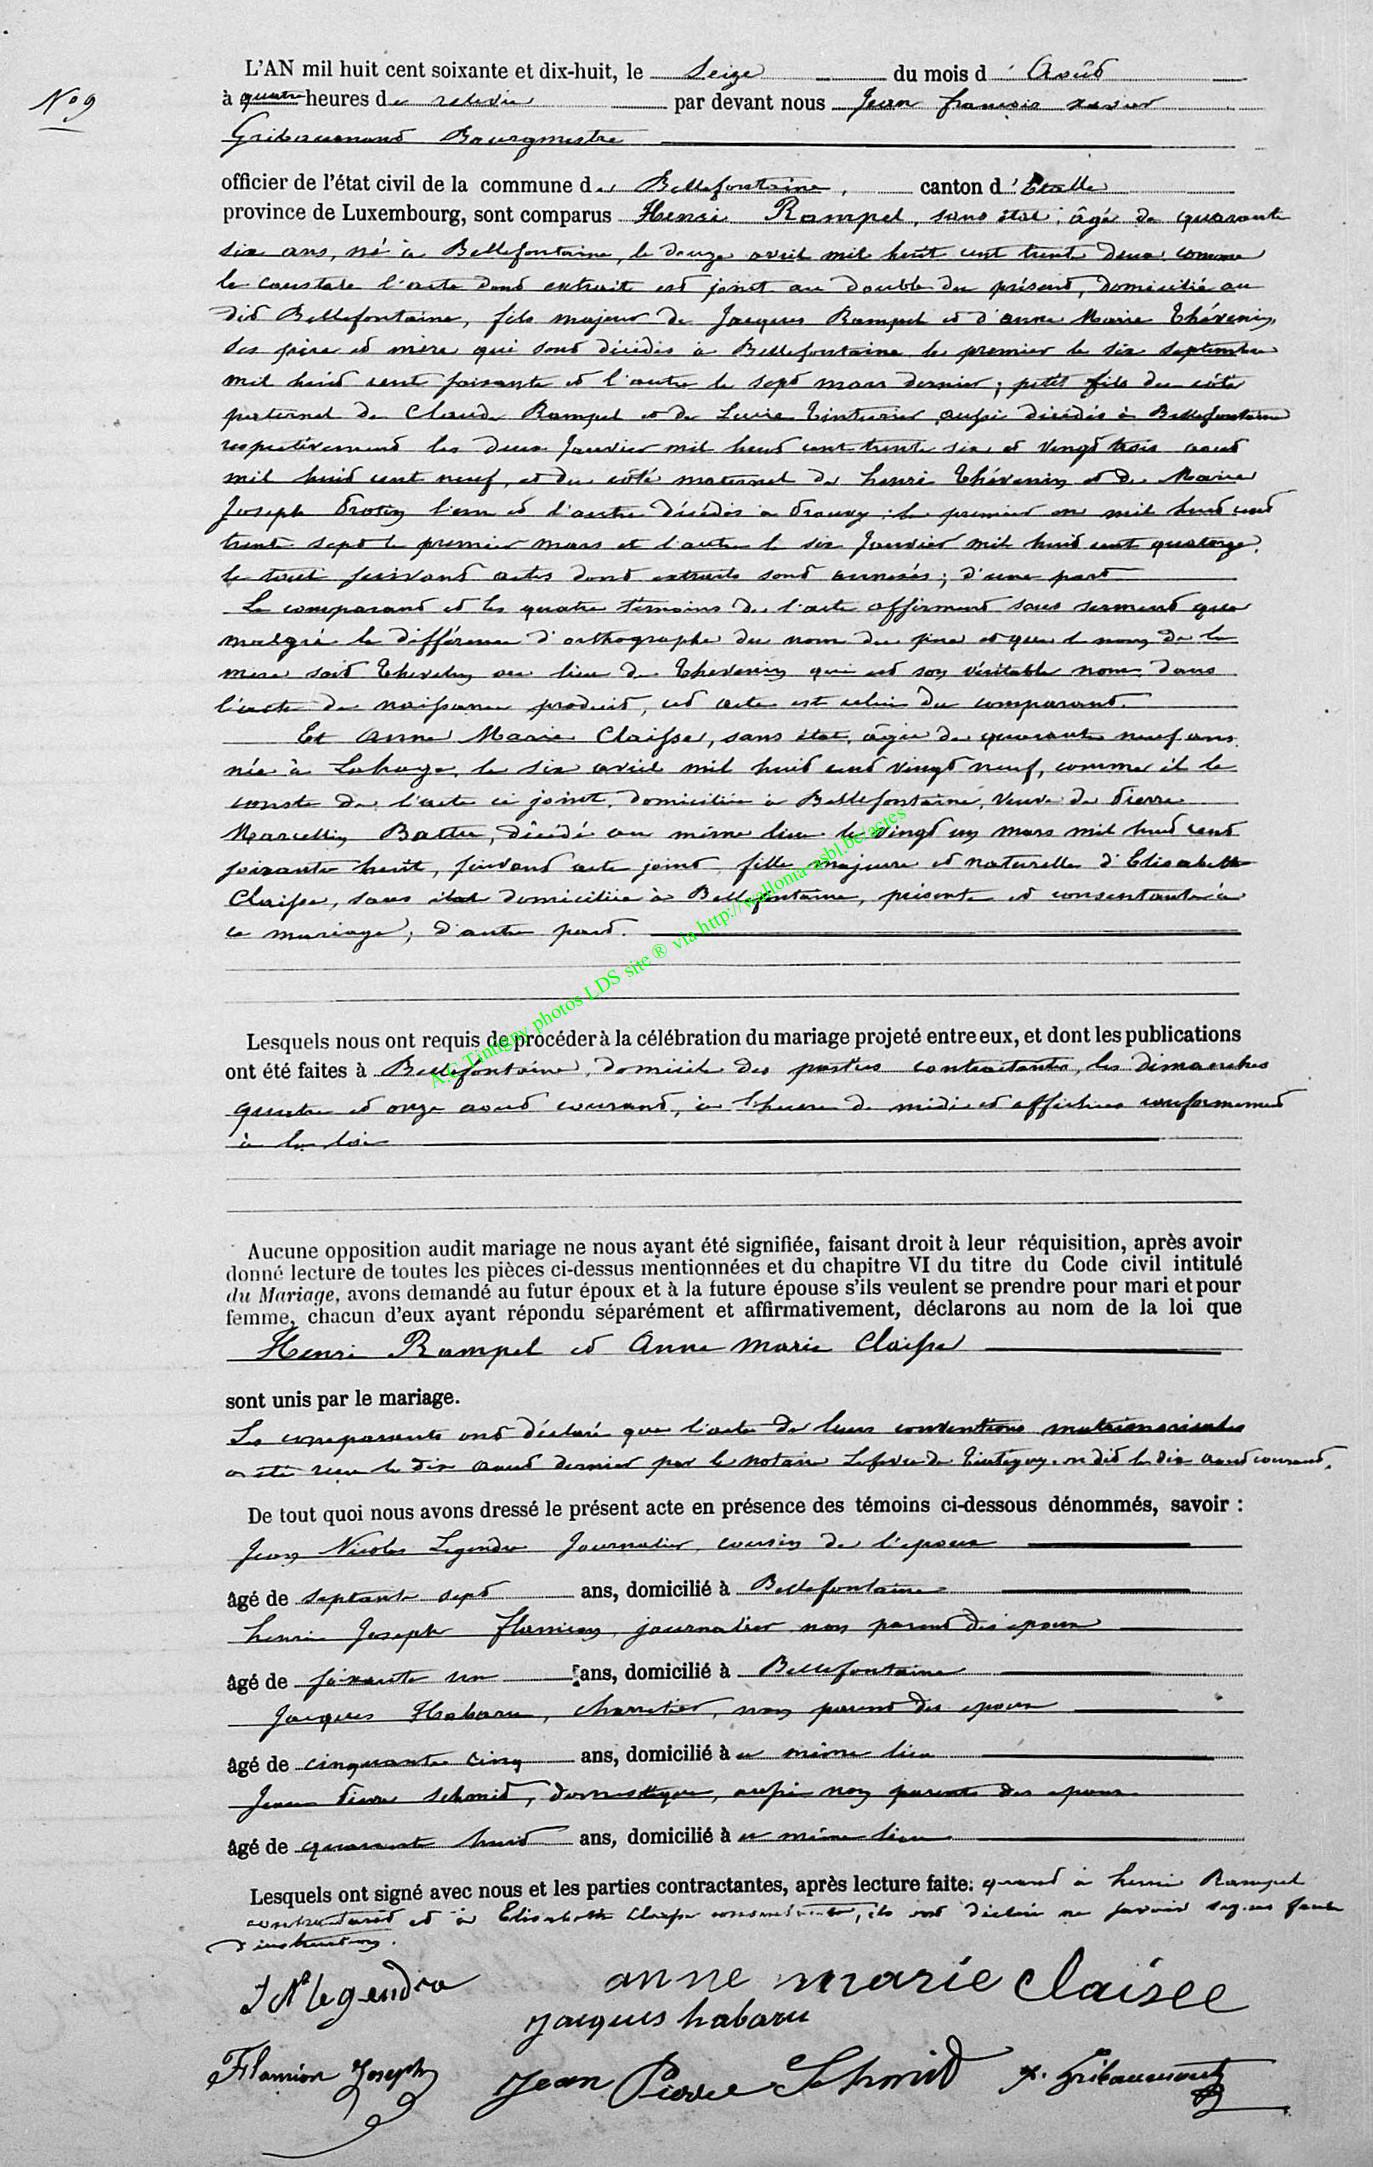 N° 9
L'AN mil huit cent soixante et dix-huit, le Seize du mois d' Août
à quatre heures de relevée par devant nous Jean françois xavier
Gribaumont Bourgmestre
officier de l'état civil de la commune de Bellefontaine, canton d' Etalle
province de Luxembourg, sont comparus Henri Rampel, sans état, âgé de quarante
six ans, né à Bellefontaine, le douze avril mil huit cent trente deux comme
le constate l'acte dont extrait est joint au double du présent, domicilié au
dit Bellefontaine, fils majeur de Jacques Rampel et d'anne Marie Thévenin,
ses père et mère qui sont décédés à Bellefontaine le premier le six septembre
mil huit cent soixante et l'autre le sept mars dernier; petit fils du côté
paternel de Claude Rampel et de Lucie Tinturier, aussi décédés à Bellefontaine
respectivement les deux Janvier mil huit cent trente six et vingt trois aout
mil huit cent neuf, et du côté maternel de henri Thévenin et de Marie
Joseph Protin l'un et l'autre décédés à Prouvy; le premier en mil huit cent
trente sept le premier mars et l'autre le six Janvier mil huit cent quatorze.
le tout suivant actes dont extraits sont annexés; d'une part
Le comparant et les quatre témoins de l'acte affirment sous serment que
malgré la différence d'orthographe du nom du père et que le nom de la
mère soit Thevelin au lieu de Thevenin qui est son véritable nom, dans
l'acte de naissance produit, cet acte est celui du comparant.
Et Anne Marie Claisse, sans état, âgée de quarante neuf ans
née à Lahage, le six avril mil huit cent vingt neuf, comme il le
conste de l'acte ci joint, domiciliée à Bellefontaine, veuve de Pierre
Marcellin Battu, décédé au même lieu le vingt un mars mil huit cent
soixante huit, suivant acte joint, fille majeure et naturelle d'Elisabeth
Claisse, sans état domiciliée à Bellefontaine, présente et consentante à
ce mariage; d'autre part.
A.C Tintigny photos LDS site ® via http://wallonia-asbl.be/actes
Lesquels nous ont requis de procéder à la célébration du mariage projeté entre eux, et dont les publications
ont été faites à Bellefontaine, domicile des parties contractantes, les dimanches
quatre et onze aout courant, à l'heure de midi et affichées conformément
à la loi
Aucune opposition audit mariage ne nous ayant été signifiée, faisant droit à leur réquisition, après avoir
donné lecture de toutes les pièces ci-dessus mentionnées et du chapitre VI du titre du Code civil intitulé
du Mariage, avons demandé au futur époux et à la future épouse s'ils veulent se prendre pour mari et pour
femme, chacun d'eux ayant répondu séparément et affirmativement, déclarons au nom de la loi que
Henri Rampel et Anne Marie Claisse
sont unis par le mariage.
Les comparants ont déclaré que l'acte de leurs conventions matrimoniales
a été reçu le dix aout dernier par le notaire Lefevre de Tintigny. on dit le dix aout courant.
De tout quoi nous avons dressé le présent acte en présence des témoins ci-dessous dénommés, savoir :
Jean Nicolas Legendre Journalier, cousin de l'epoux
âgé de septante sept ans, domicilié à Bellefontaine
henri Joseph Flamion, journalier non parent des epoux
âgé de soixante un ans, domicilié à Bellefontaine
Jacques Habaru, charretier, non parent des epoux
âgé de cinquante cinq ans, domicilié à u même lieu
Jean Pierre Schmid, domestique, aussi non parent des epoux
âgé de quarante huit ans, domicilié à u même lieu
Lesquels ont signé avec nous et les parties contractantes, après lecture faite. quant à henri Rampel
contractant et à Elisabeth Claisse consentante, ils ont déclaré ne savoir signer faute
d'instruction.
J N legendre
anne marie claisee
jacques habaru
Flamion Joseph
Jean Pierre Schmit
x. Gribaumont